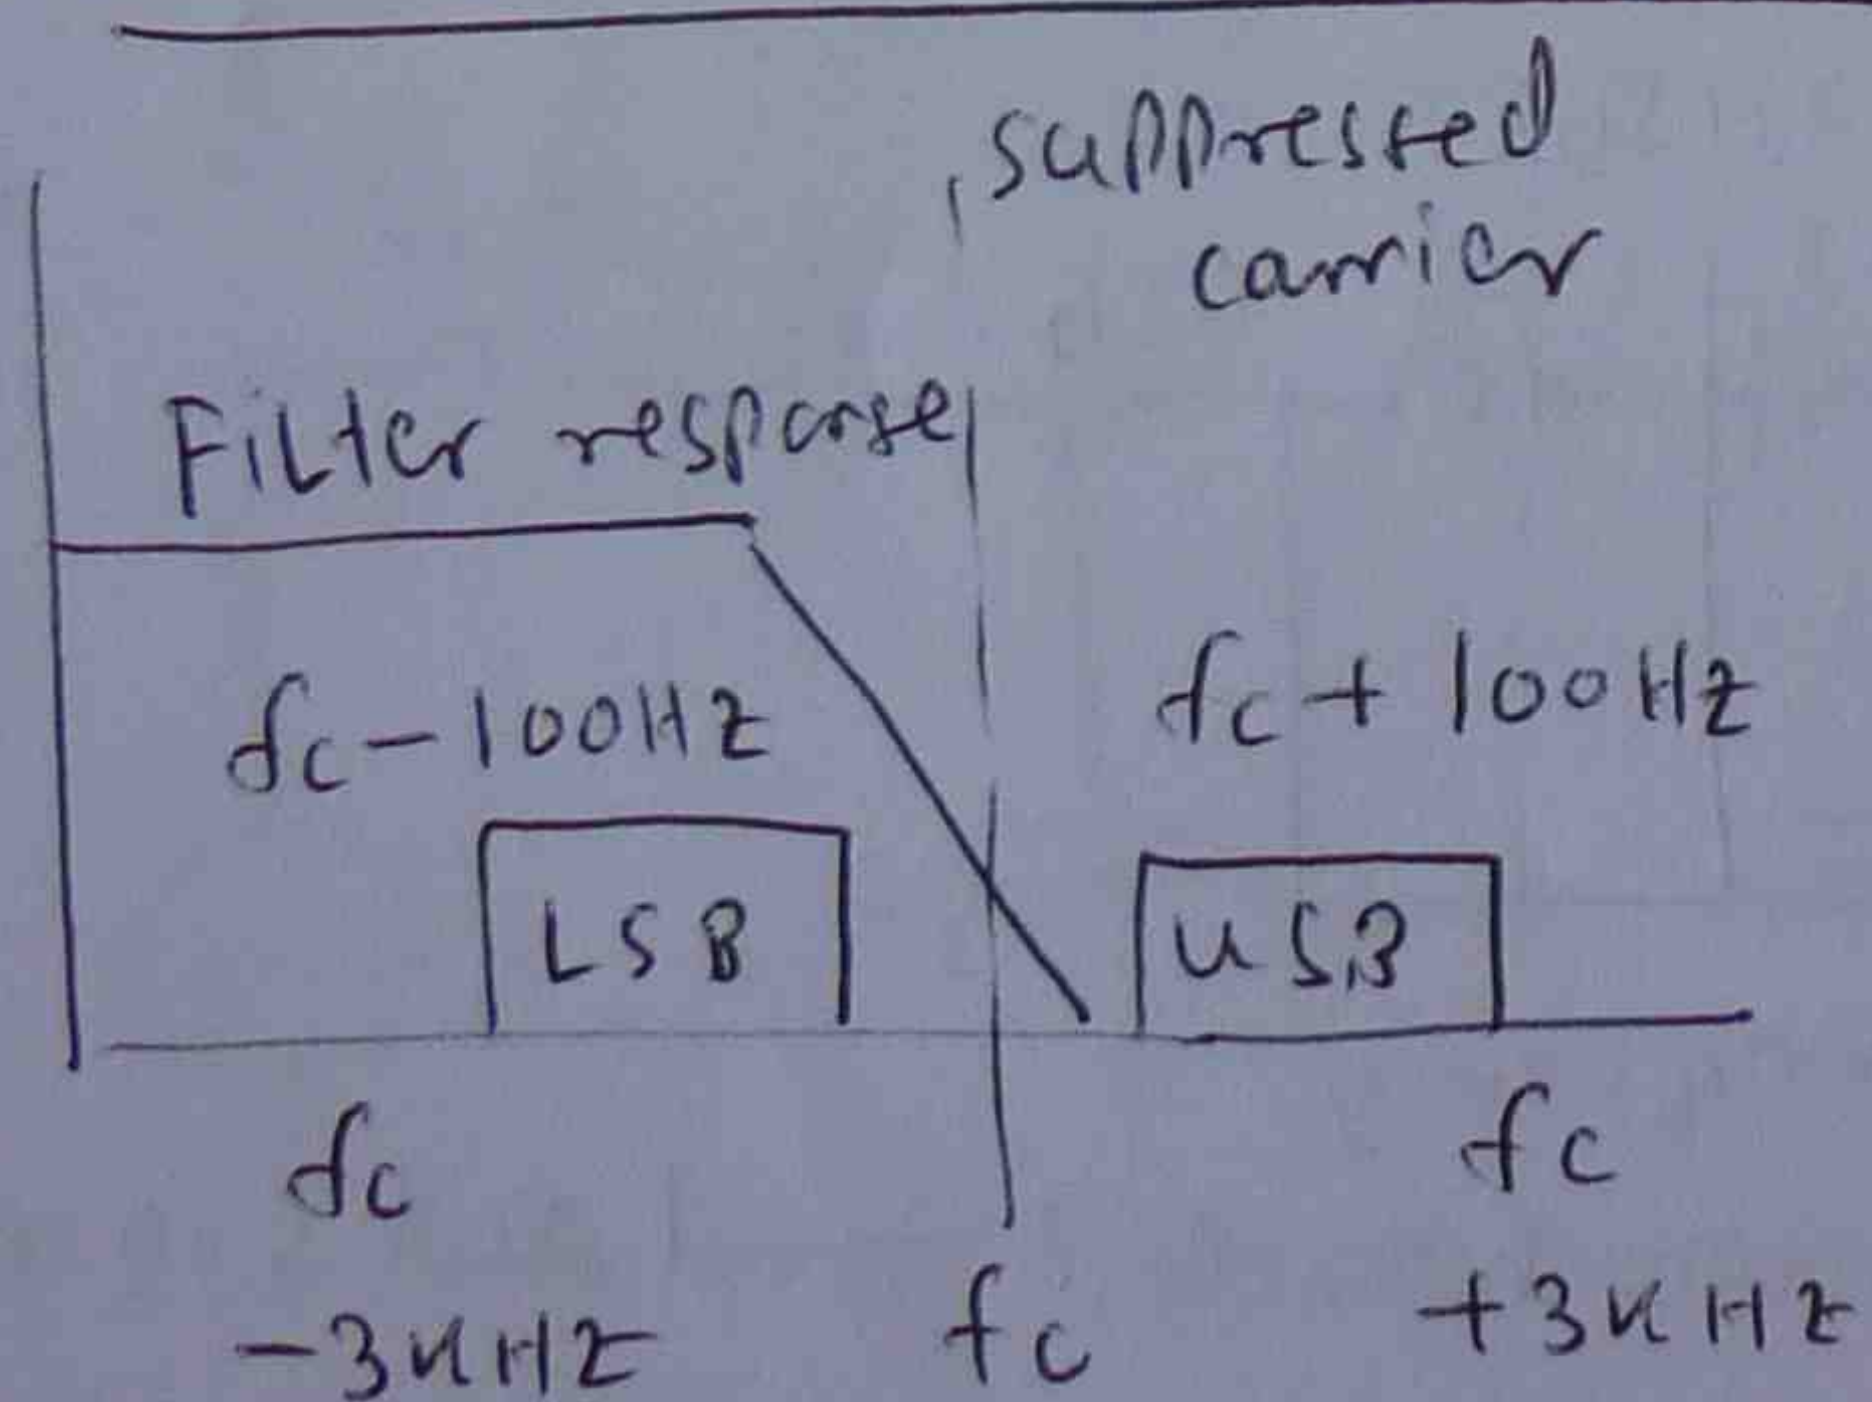 suppressed
carrier
Filter response
fc - 100Hz
fc + 100Hz
LSB
USB
fc
- 3KHz
fc
fc
+ 3KHz